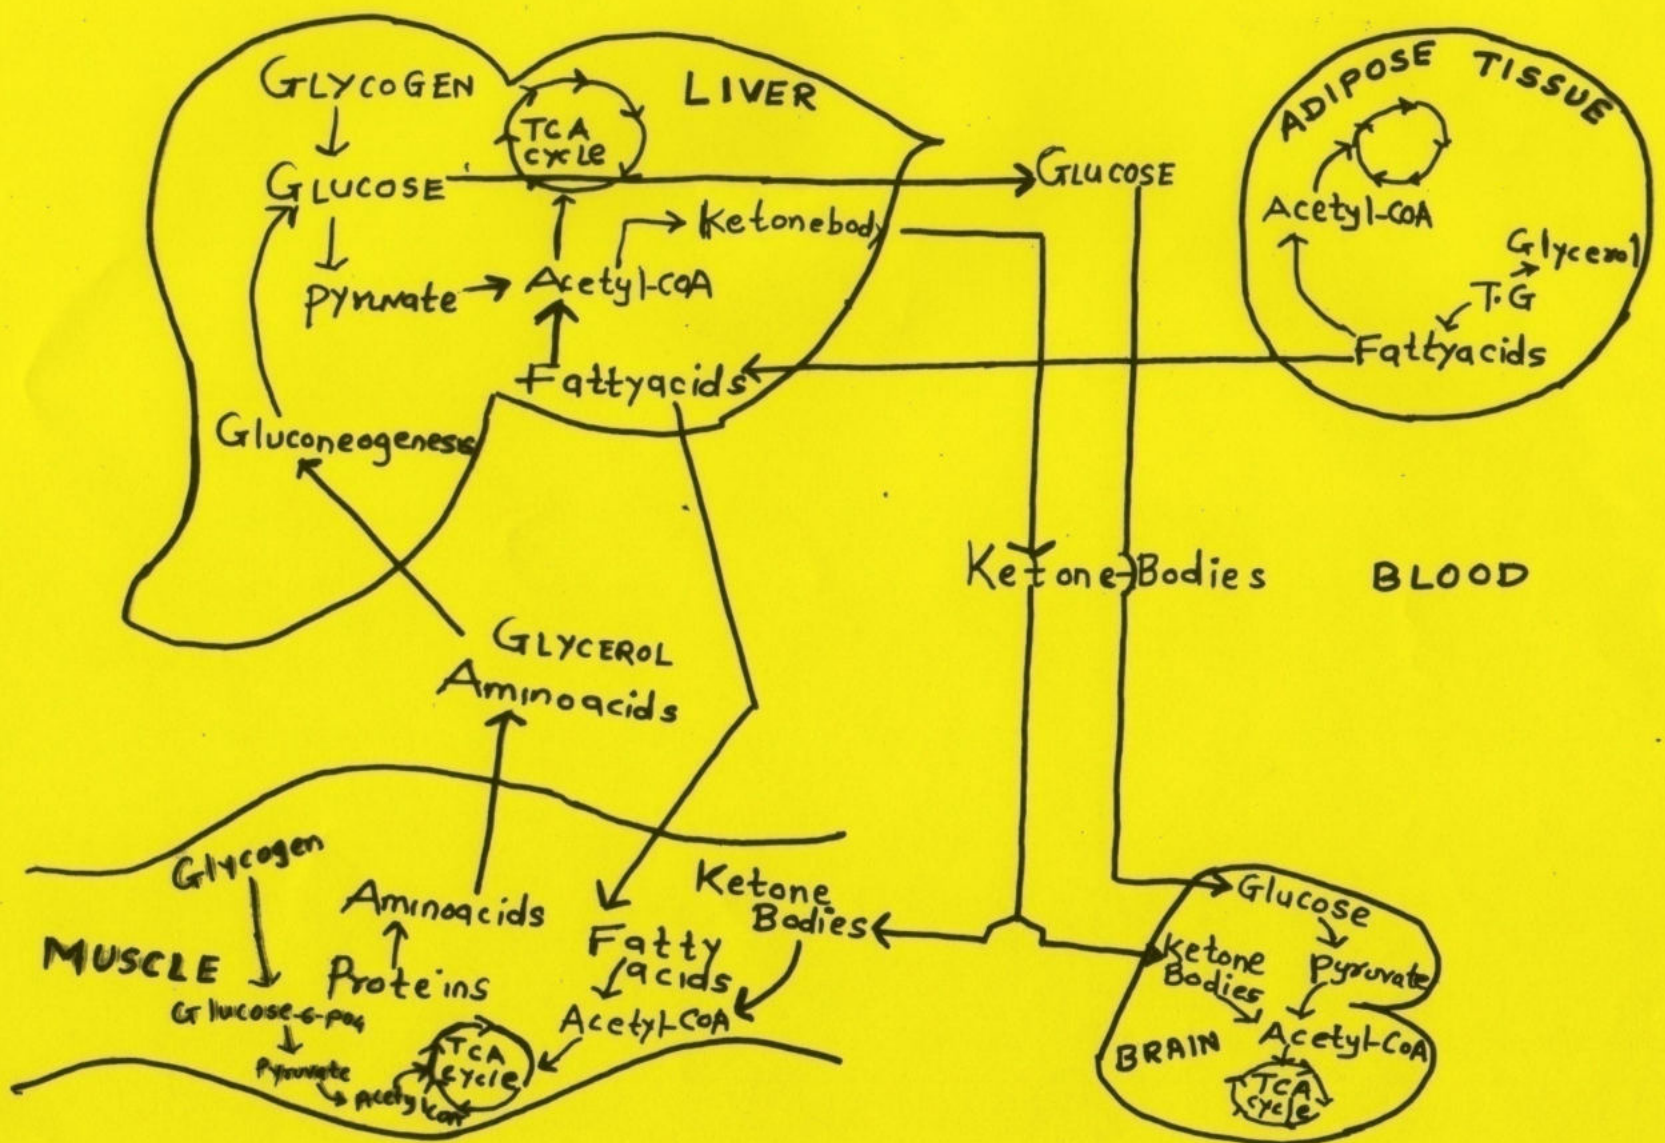 GLYCOGEN
LIVER
TCA
cycle
GLUCOSE
Ketonebody
Pyruvate
Acetyl-CoA
Fattyacids
Gluconeogenesis
GLUCOSE
ADIPOSE TISSUE
Acetyl-COA
Glycerol
T.G
Fattyacids
Ketone-Bodies
BLOOD
GLYCEROL
Aminoacids
Glycogen
MUSCLE
Aminoacids
Proteins
Glucose-6-PO4
Pyruvate
Acetyl CoA
TCA
cycle
Fatty
acids
Ketone
Bodies
Acetyl-COA
Glucose
Ketone
Bodies
Pyruvate
Acetyl-CoA
BRAIN
TCA
cycle